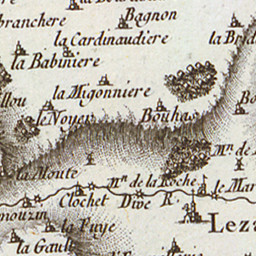 branchere
Bagnon
la Cardinaudiere
la Babiniere
la Migonniere
le Noyer
Bouhas
la Moute
Mn. de la Roche
le Mar
Clochet
Dive R.
mouzin
la Puye
Leza
la Gault